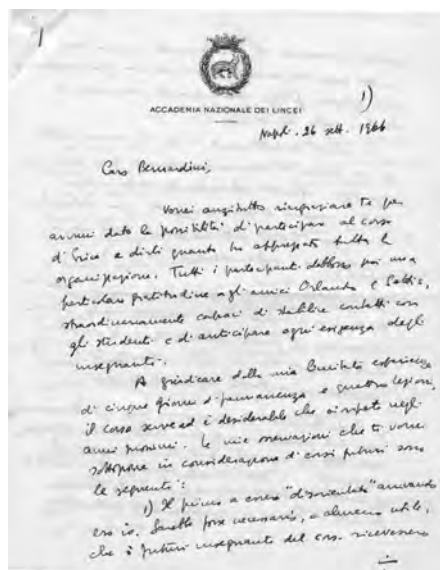 1
ACCADEMIA NAZIONALE DEI LINCEI
1)
Napoli, 26 sett. 1966
Caro Bernardini,
Vorrei anzitutto ringraziare te per
avermi dato la possibilità di partecipare al corso
d'Erice e dirti quanto ho apprezzato tutta la
organizzazione. Tutti i partecipanti debbono poi una
particolare gratitudine agli amici Orlando e
straordinariamente capaci di stabilire contatti con
gli studenti e di anticipare ogni esigenza degli
insegnanti.
A giudicare dalla mia limitata esperienza
di cinque giorni di permanenza e quattro lezioni,
il corso serve ed è desiderabile che si ripeta negli
anni prossimi. Le mie osservazioni che ti vorrei
sottoporre in considerazione di corsi futuri sono
le seguenti:
1) Il primo a essere "disorientato" arrivando
ero io. Sarebbe forse necessario, o almeno utile,
che i futuri insegnanti del corso ricevessero